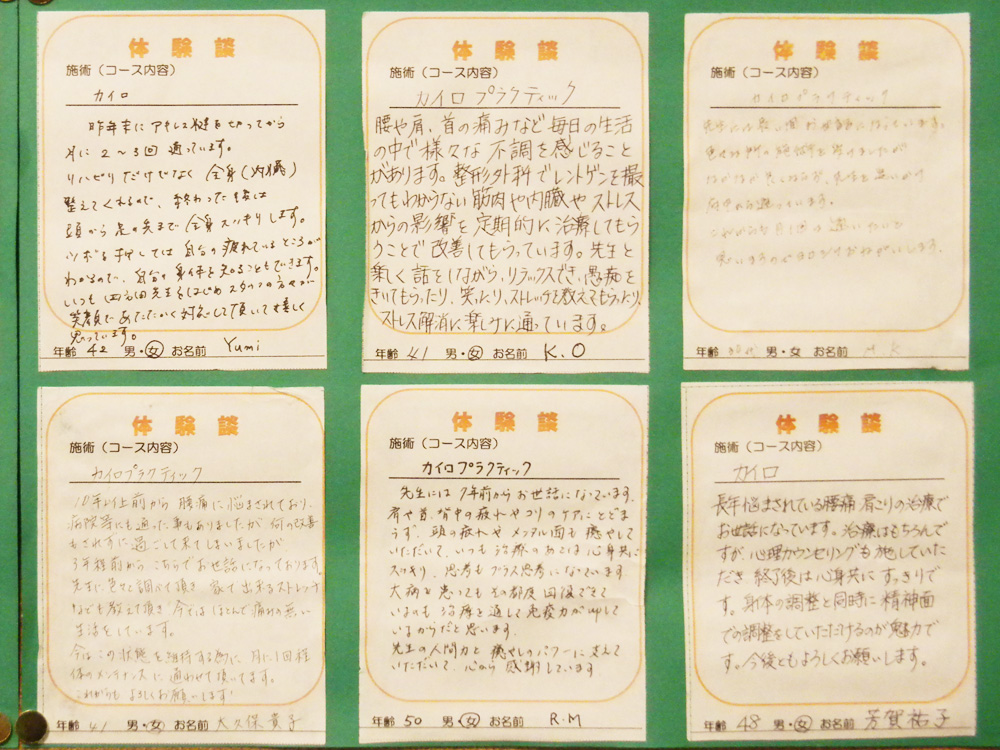 体験談
施術（コース内容）
カイロ
昨年末にアキレス腱を切ってから
月に2〜3回通っています。
リハビリだけじなく全身(内臓)
整えてくれるので、終わった後は
頭から足の先まで全身スッキリします。
ツボを押しては自分の疲れているところが
わかるので、自分の身体を知ることもできます。
いつも 先生をはじめスタッフの方々が
笑顔であたたかく対応して頂いて嬉しく
思っています。
年齢 42 男・女 お名前 Yumi
体験談
施術（コース内容）
カイロプラクティック
腰や肩、首の痛みなど毎日の生活
の中で様々な不調を感じること
があります。整形外科でレントゲンを撮
ってもわからない筋肉や内臓やストレス
からの影響を定期的に治療してもら
うことで改善してもらっています。先生と
楽しく話をしながら、リラックスでき、愚痴を
きいてもらったり、笑ったり、ストレッチを教えてもらったり、
ストレス解消に楽しみに通っています。
年齢 41 男・女 お名前 K.O
体験談
施術（コース内容）
カイロプラクティック
年齢 男・女 お名前 M.K
体験談
施術（コース内容）
カイロプラクティック
10年以上前から腰痛に悩まされており、
病院等にも通った事もありましたが何の改善
もされずに過ごして来てしまいましたが
3年程前からこちらでお世話になっております。
先生に色々と調べて頂き 家で出来るストレッチ
なども教えて頂き 今ではほとんど痛みの無い
生活をしています。
今はこの状態を維持する為に、月に1回程
体のメンテナンスに通わせて頂いてます。
これからもよろしくお願いします
年齢 41 男・女 お名前 大久保貴子
体験談
施術（コース内容）
カイロプラクティック
先生には7年前からお世話になっています。
肩や首、背中の疲れやコリのケアにとどま
らず、頭の疲れやメンタル面も癒やして
いただいて、いつも治療のあとは心身共に
スッキリ、思考もプラス思考になっています
大病と思ってもその都度回復できて
いるのも治療を通して免疫力がupして
いるからだと思います。
先生の人間力と癒やしのパワーに支えて
いただいて、心から感謝しています
年齢 50 男・女 お名前 R.M
体験談
施術（コース内容）
カイロ
長年悩まされている腰痛 肩こりの治療で
お世話になっています。治療はもちろんで
すが、心理カウンセリングも施していた
だき、終了後は心身共にすっきりで
す。身体の調整と同時に精神面
での調整をしていただけるのが魅力で
す。今後ともよろしくお願いします。
年齢 48 男・女 お名前 芳賀祐子